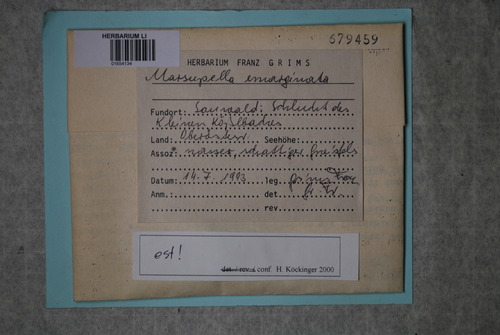 HERBARIUM LI
679459
HERBARIUM FRANZ GRIMS
Marsupella emarginata
Fundort: Sauwald: Schlucht des
Kleinen Kößlbaches
Land: Seehöhe:
Assoz: nasser, schattiger
Datum: 14.7.1983 leg. Grims
Anm.: det.
rev.
est!
det./rev./conf. H. Köckinger 2000